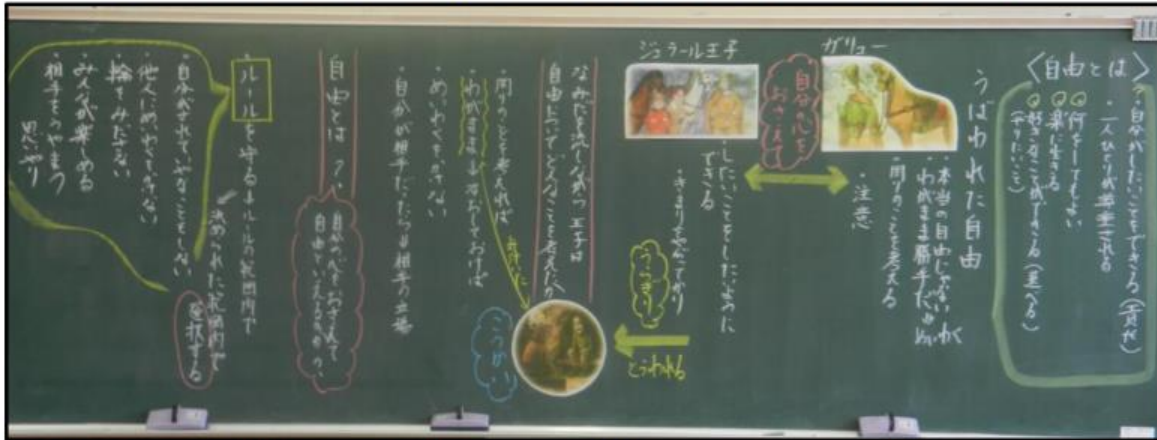 〈自由とは〉
・自分がしたいことをできる
・一人ひとりが尊重される
・何をしてもよい
・楽に生きる
・好きなことができる(選べる)
(やりたいこと)
うばわれた自由
ガリュー
・本当の自由じゃない
わがまま勝手だ
・周りのことを考える
・注意
自分の心を
おさえて
ジェラール王子
・したいことをしたいように
できる
・きまりをやぶってかり
うらぎり
とらわれる
なみだを流しながら王子は
自由についてどんなことを考えたか
・周りのことを考えれば
・わがままを直しておけば
・めいわくをかけない
・自分が相手だったら
こうかい
自由とは?
自分の心をおさえて
自由といえるのか?
・ルールを守る
ルールの範囲内で
決められた範囲内で
選択する
・自分がされていやなことをしない
・他人にめいわくをかけない
・輪をみださない
・みんなが楽しめる
・相手をうやまう
思いやり